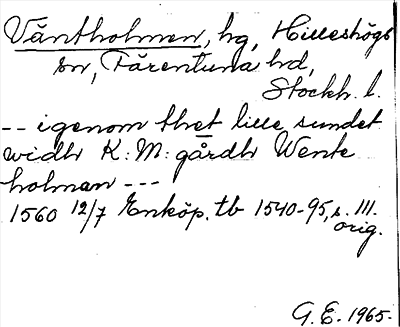 Väntholmen, hg, Hilleshögs
sn, Färentuna hd,
Stockh. l.
-- igenom thet lille sundet
widh K: M: gårdh Wente
holman ---
1560 12/7 Enköp. tb 1540-95, s. 111.
orig.
G. E. 1965.